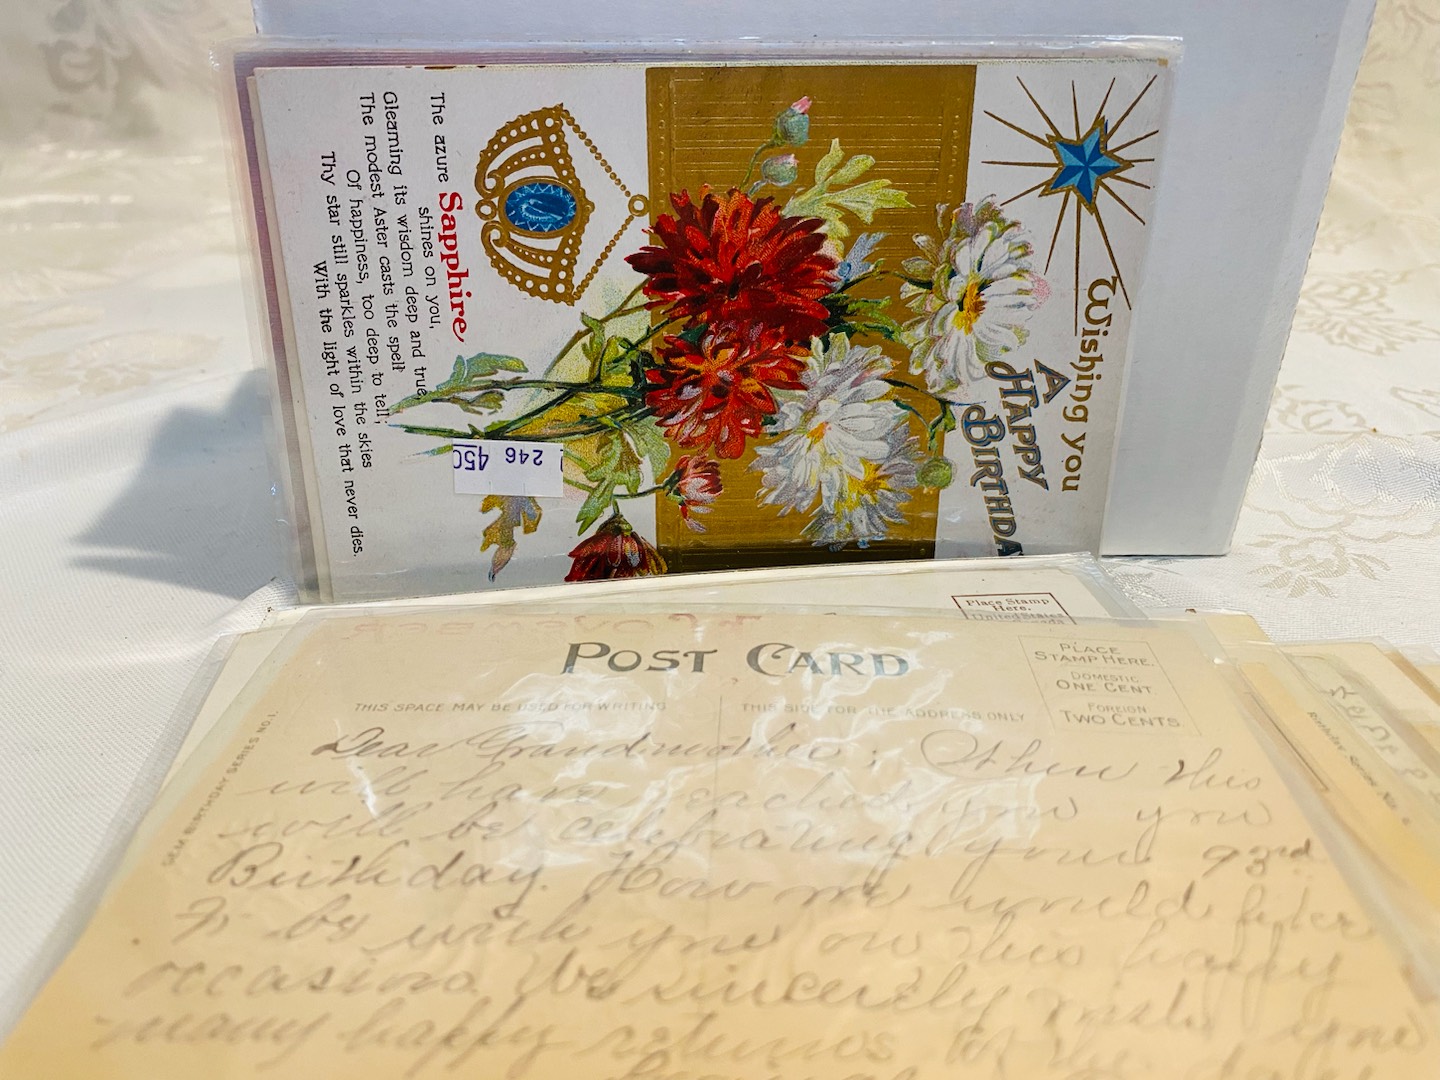 Wishing you
A HAPPY
BIRTHDA
The azure Sapphire
shines on you,
Gleaming its wisdom deep and true
The modest Aster casts the spell
Of happiness, too deep to tell,
Thy star still sparkles within the skies
With the light of love that never dies.
246 450
Place Stamp
Here.
United States
POST CARD
PLACE
STAMP HERE.
DOMESTIC
ONE CENT
FOREIGN
TWO CENTS
THIS SPACE MAY BE USED FOR WRITING
THIS SIDE FOR THE ADDRESS ONLY
GEM BIRTHDAY SERIES NO. 1.
Dear Grandmother; When this
will have reached you you
will be celebrating your 93rd
Birthday. How we would like
to be with you on this happy
occasion. We sincerely wish you
many happy returns of the day